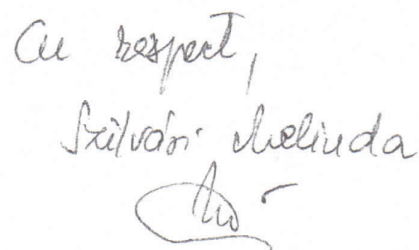 Cu respect,
Szilvási Melinda